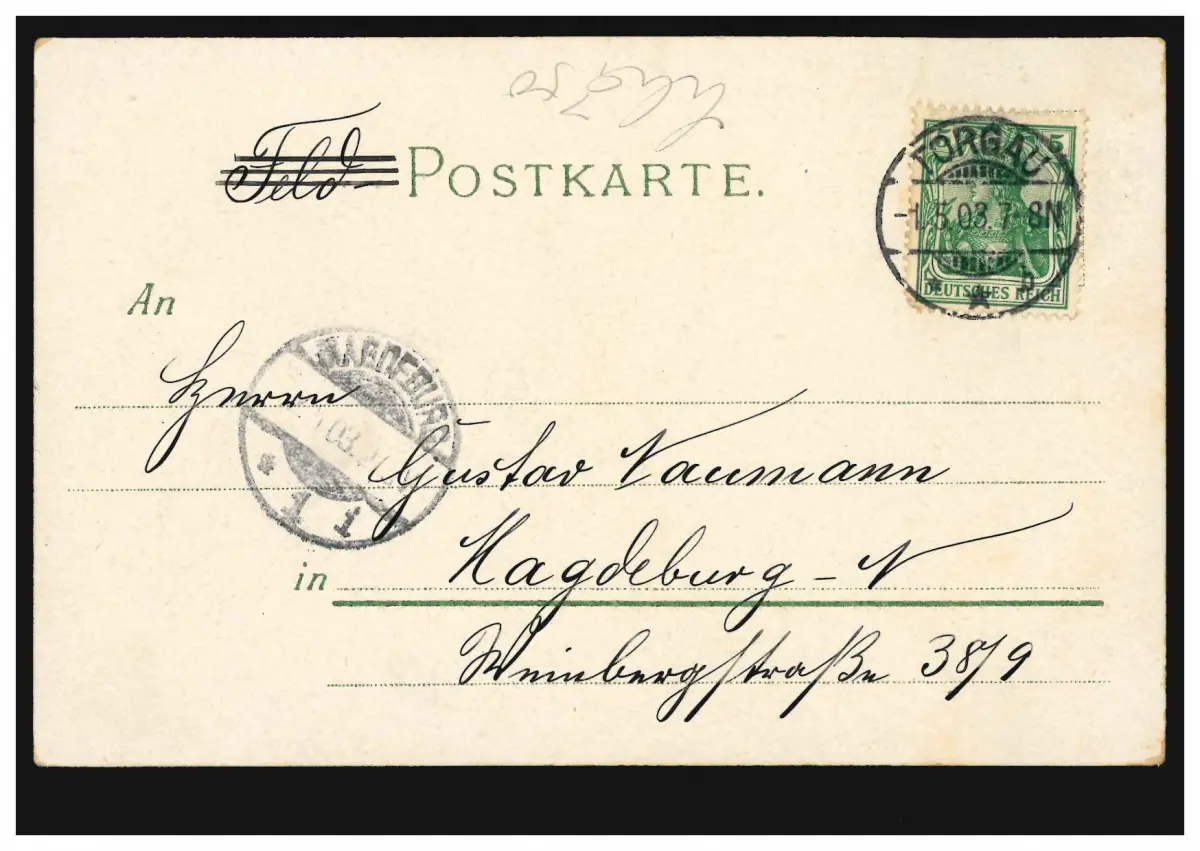 Feld- POSTKARTE.
5 5
TORGAU
-1.5.03.7-8N
* * b
DEUTSCHES REICH
An
MAGDEBURG
03
* 1 1
Herrn
Gustav Naumann
in Magdeburg - N
Weinbergstraße 38/9